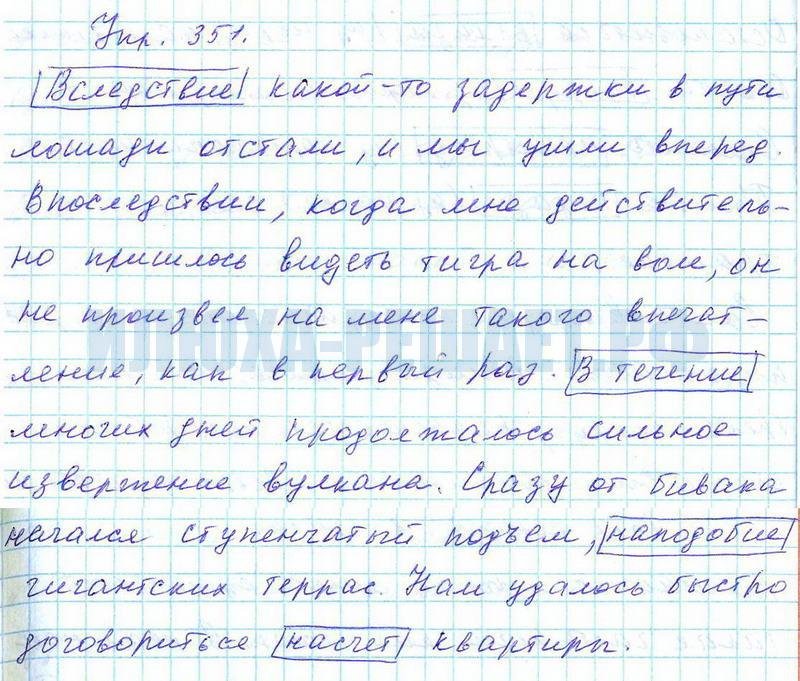 Упр. 351.
Вследствие какой-то задержки в пути
лошади отстали, и мы ушли вперед.
Впоследствии, когда мне действитель-
но пришлось видеть тигра на воле, он
не произвел на меня такого впечат-
ление, как в первый раз. В течение
многих дней продолжалось сильное
извержение вулкана. Сразу от бивака
начался ступенчатый подъем, наподобие
гигантских террас. Нам удалось быстро
договориться насчет квартиры.
ИЛЮХА-РЕШАЕТ.РФ